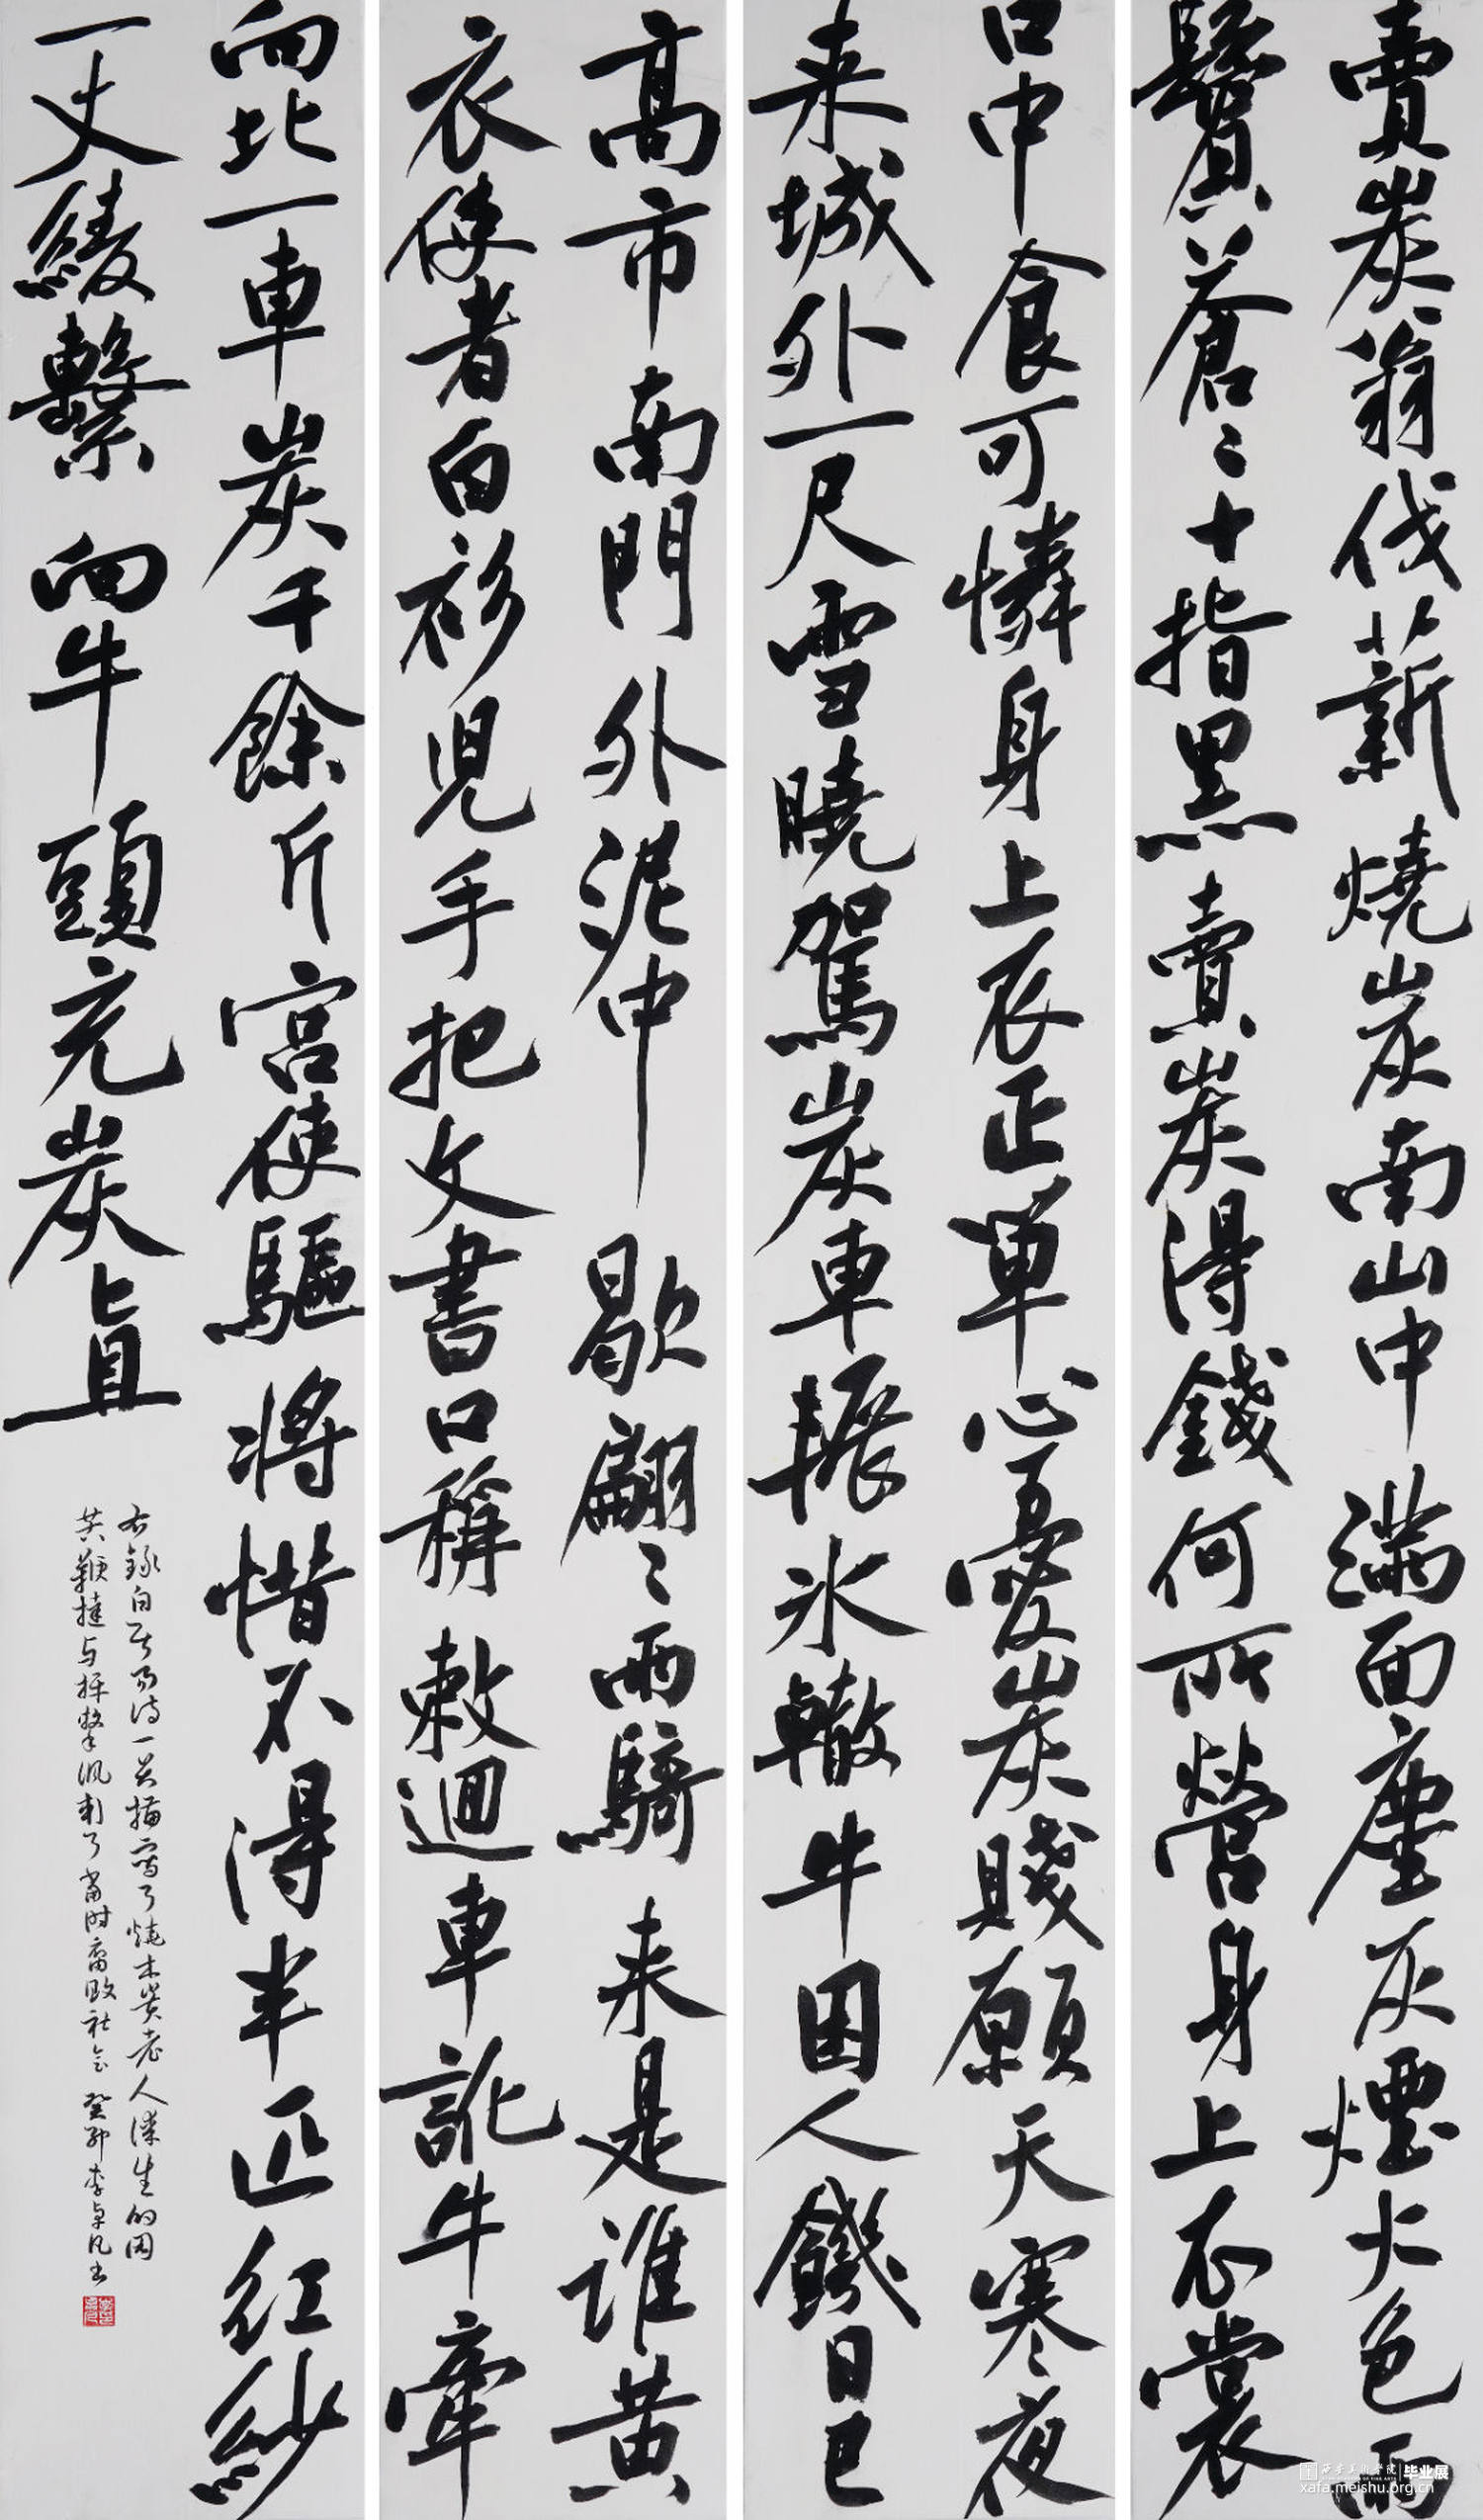 賣炭翁伐薪燒炭南山中滿面塵灰煙火色兩
鬢蒼〻十指黑賣炭得錢何所營身上衣裳
口中食可憐身上衣正單心憂炭賤願天寒夜
来城外一尺雪曉駕炭車輾冰轍牛困人饑日已
高市南門外泥中歇翩〻兩騎来是誰黄
衣使者白衫兒手把文書口稱敕迴車訛牛牽
向北一車炭千餘斤宮使驅將惜不得半匹紅紗
一丈綾繫向牛頭充炭直
右錄白居易诗一首描寫了燒木炭老人謀生的困
苦鞭撻与抨擊諷刺了當时腐敗社会癸卯李卓凡书
西安美术学院 毕业展
xafa.meishu.org.cn